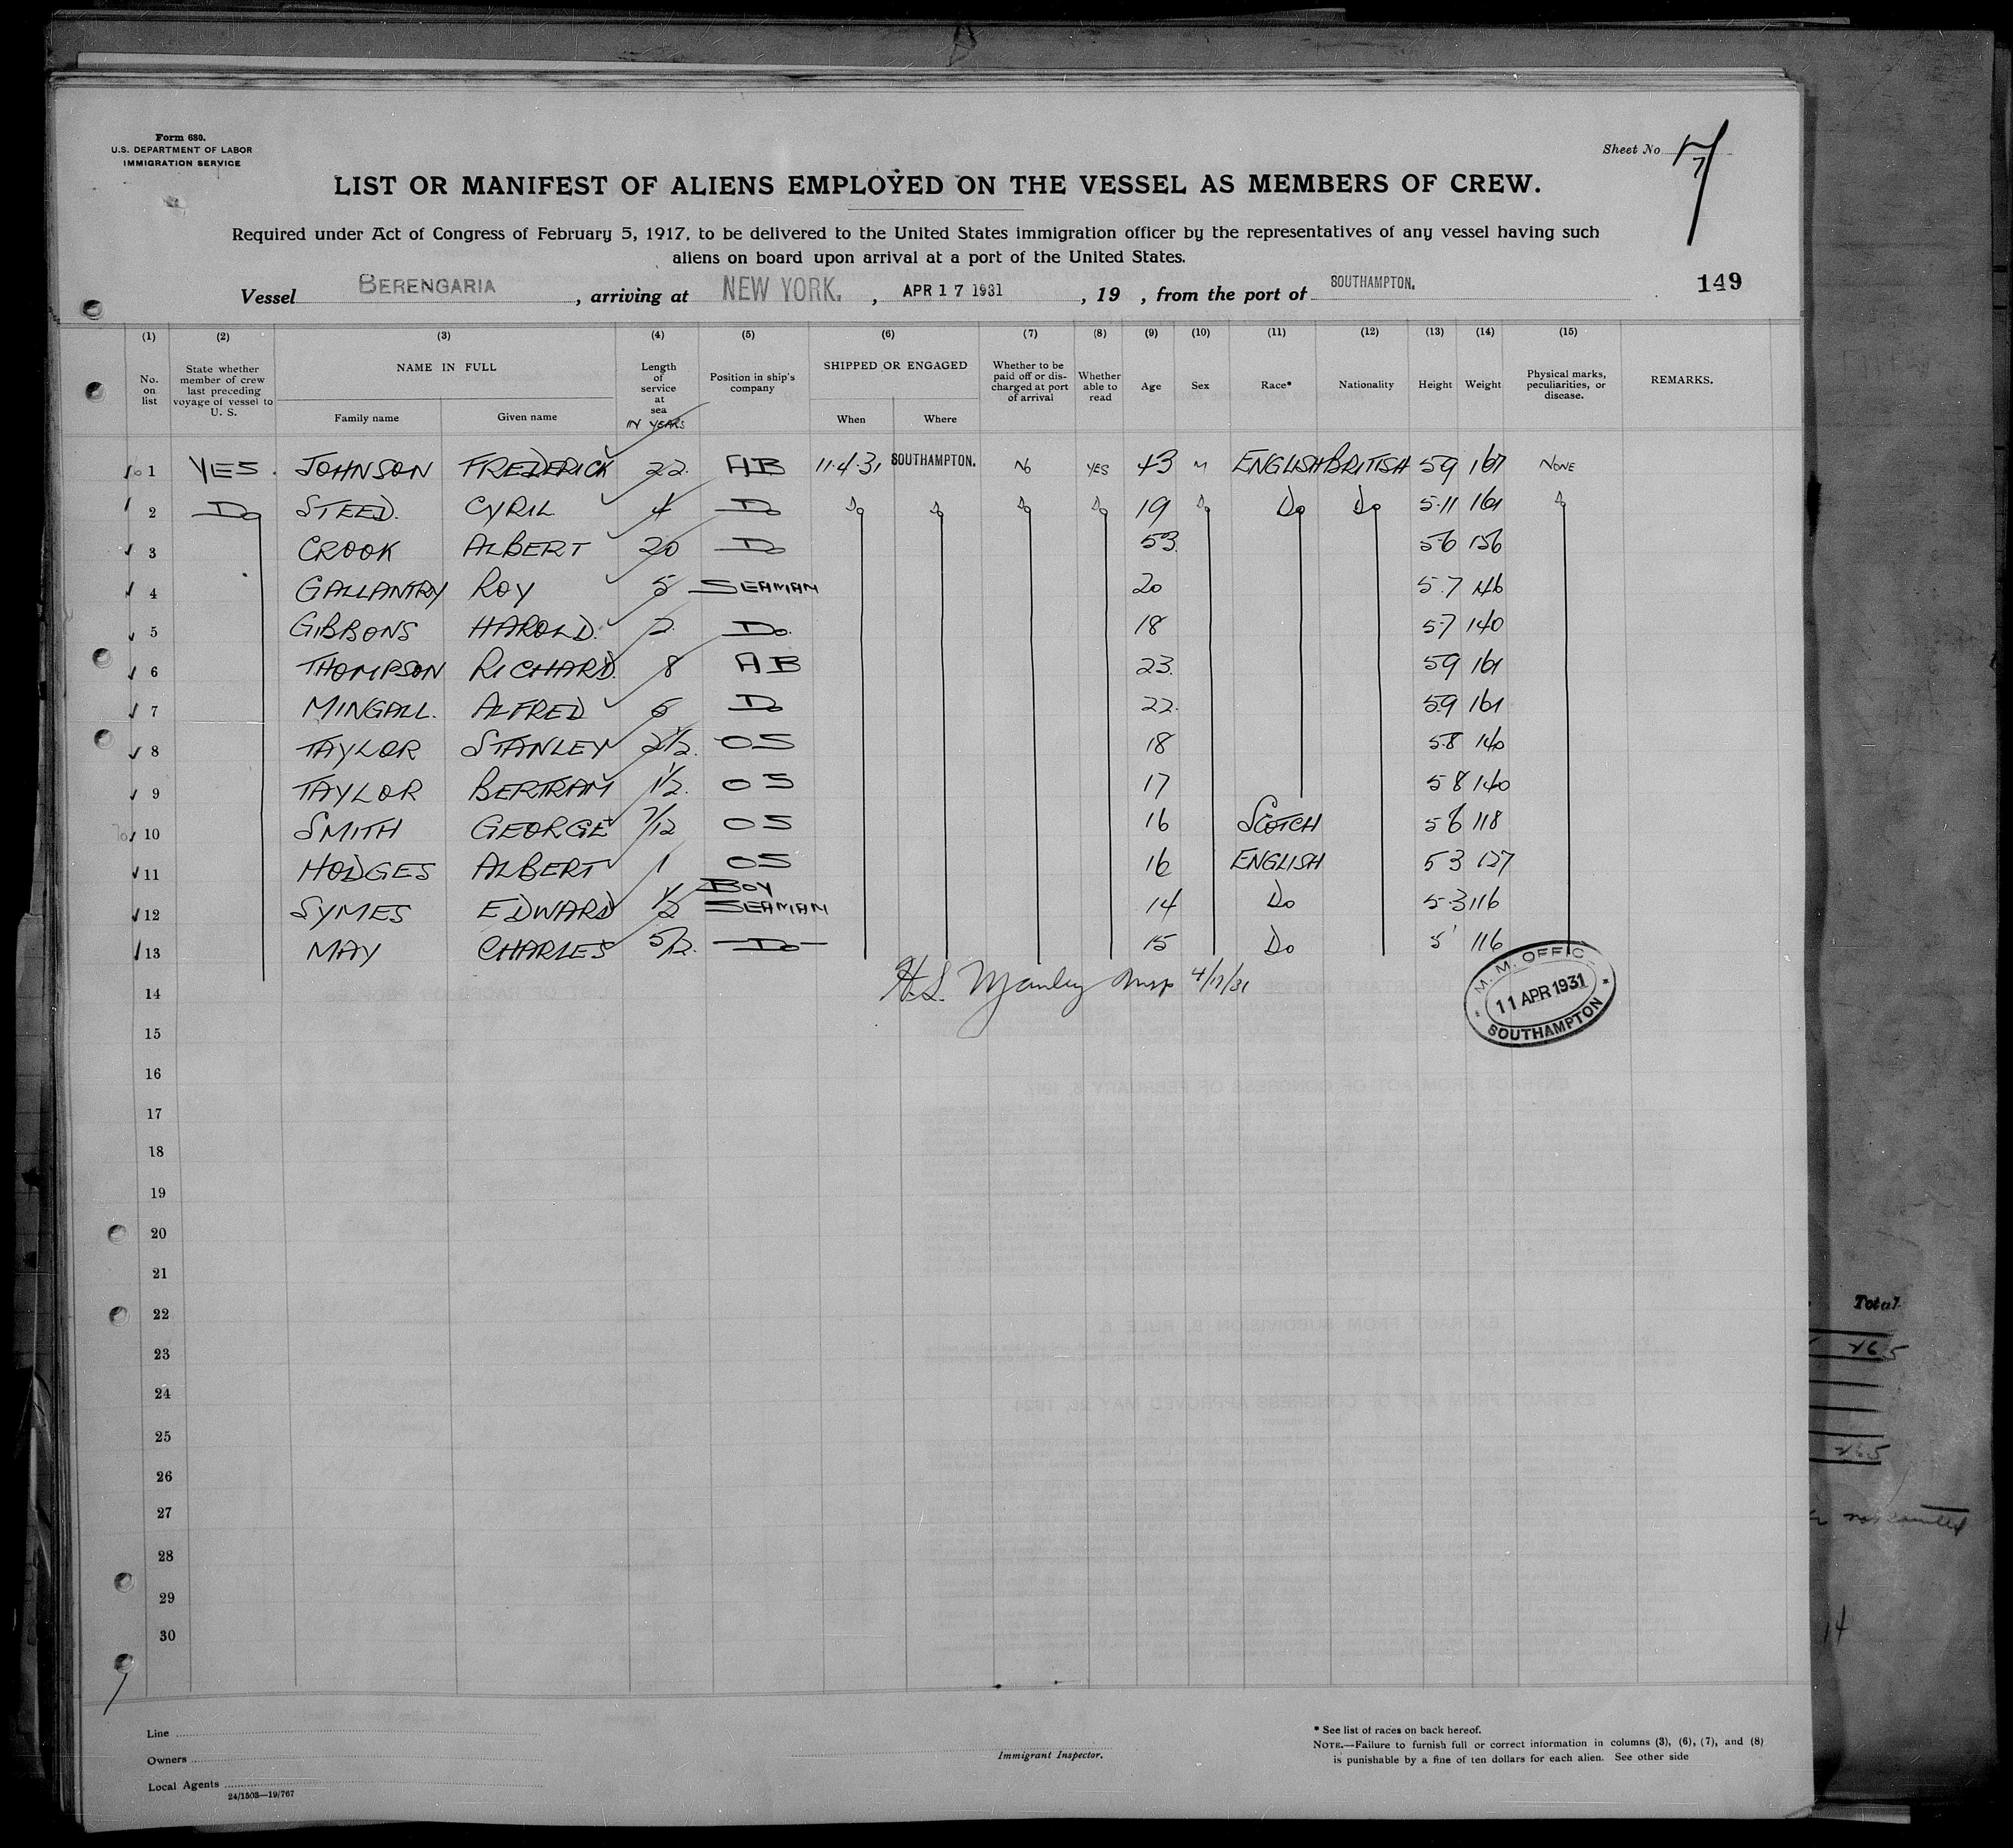 Form 680.
U.S. DEPARTMENT OF LABOR
IMMIGRATION SERVICE
Sheet No 7
7
LIST OR MANIFEST OF ALIENS EMPLOYED ON THE VESSEL AS MEMBERS OF CREW.
Required under Act of Congress of February 5, 1917, to be delivered to the United States immigration officer by the representatives of any vessel having such
aliens on board upon arrival at a port of the United States.
Vessel BERENGARIA, arriving at NEW YORK., APR 17 1931, 19 , from the port of SOUTHAMPTON. 149
(1) (2) (3) (4) (5) (6) (7) (8) (9) (10) (11) (12) (13) (14) (15)
No. on list State whether member of crew last preceding voyage of vessel to U. S. NAME IN FULL Family name Given name Length of service at sea IN YEARS Position in ship's company SHIPPED OR ENGAGED When Where Whether to be paid off or discharged at port of arrival Whether able to read Age Sex Race* Nationality Height Weight Physical marks, peculiarities, or disease. REMARKS.
1 YES. JOHNSON FREDERICK 22. AB 11.4.31 SOUTHAMPTON. No YES 43 M ENGLISH BRITISH 59 167 NONE
2 Do STEED. CYRIL 4 Do Do Do Do Do 19 Do Do Do 5.11 161 Do
3 CROOK ALBERT 20 Do 53. 56 156
4 GALLANTRY ROY 5 SEAMAN 20 5.7 146
5 GIBBONS HAROLD. 2 Do. 18 57 140
6 THOMPSON RICHARD. 8 AB 23. 59 161
7 MINGALL. ALFRED 6 Do 22. 59 161
8 TAYLOR STANLEY 2 1/2. OS 18 5.8 140
9 TAYLOR BERTRAM 1 1/2. OS 17 58 140
10 SMITH GEORGE 7/12 OS 16 SCOTCH 56 118
11 HODGES ALBERT 1 OS 16 ENGLISH 53 127
12 SYMES EDWARD 1/2 BOY SEAMAN 14 Do 5.3 116
13 MAY CHARLES 5/12. Do 15 Do 5' 116
H.L. Manley Insp 4/17/31
M. M. OFFIC
11 APR 1931
SOUTHAMPTON
14
15
16
17
18
19
20
21
22
23
24
25
26
27
28
29
30
Total
265
265
14
Line
Owners
Local Agents
24/1503—19/767
Immigrant Inspector.
* See list of races on back hereof.
NOTE.—Failure to furnish full or correct information in columns (3), (6), (7), and (8)
is punishable by a fine of ten dollars for each alien. See other side